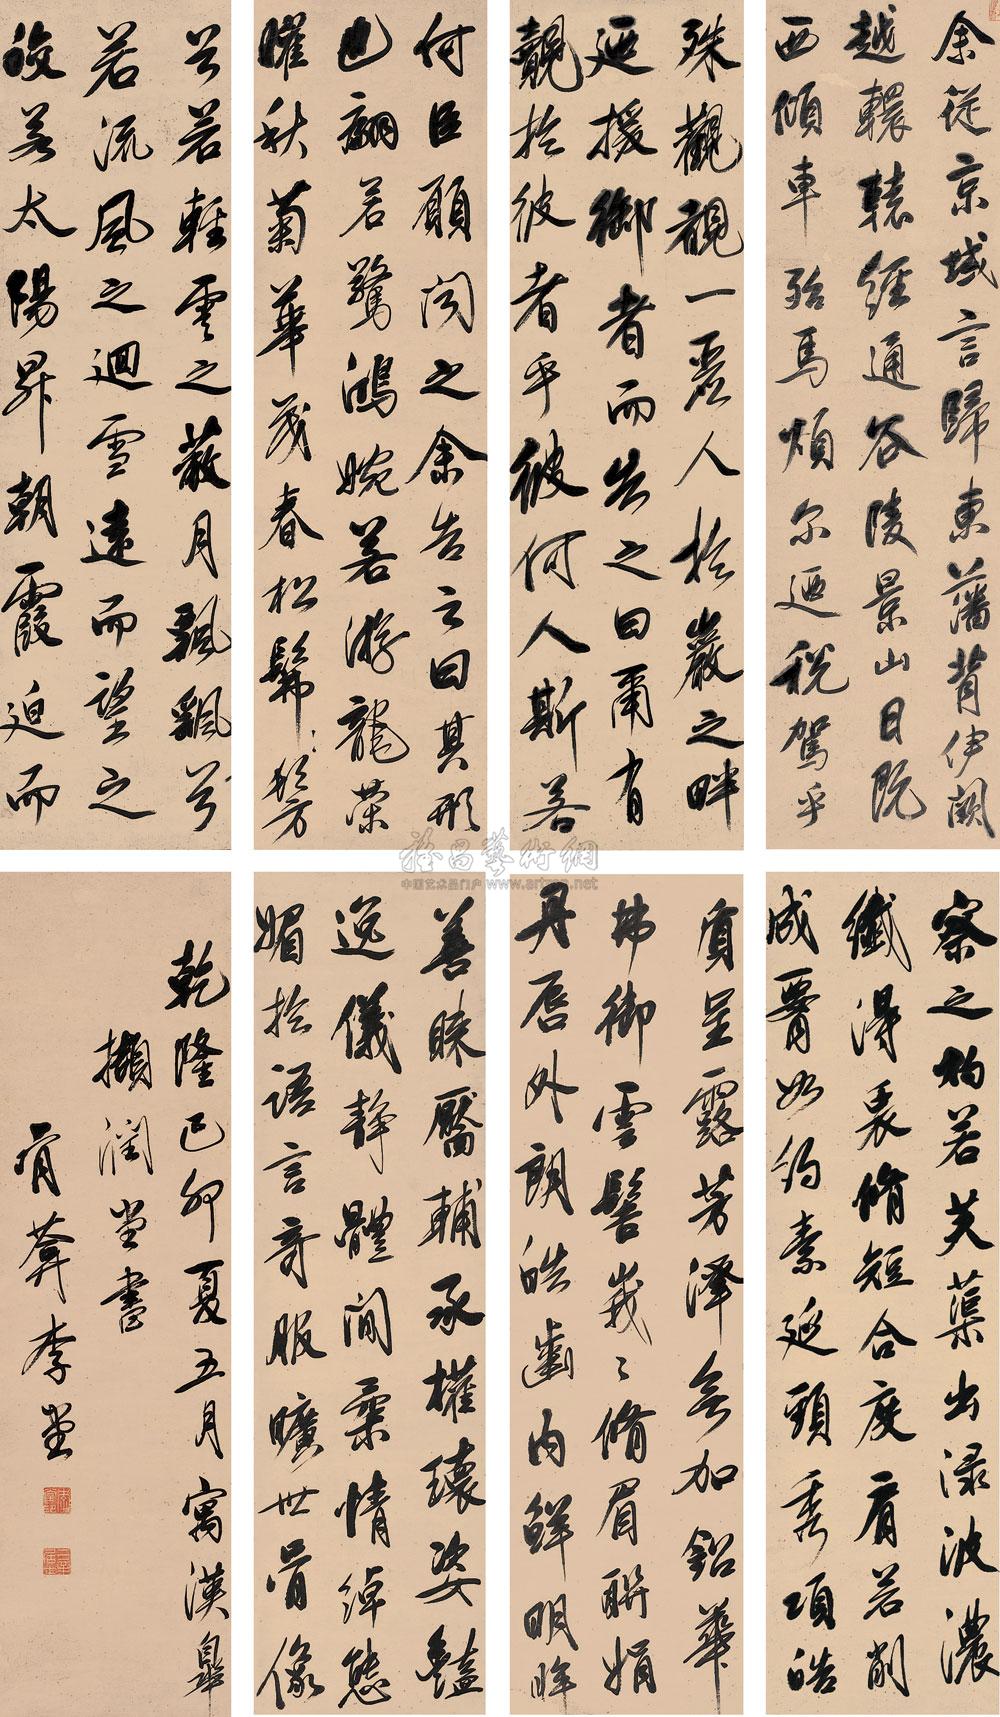 余從京域言歸東藩背伊闕
越轘轅經通谷陵景山日既
西傾車殆馬煩尔迺稅駕乎
殊觀覩一麗人於巖之畔
迺援御者而告之曰爾有
覿於彼者乎彼何人斯若
何臣願聞之余告之曰其形
也翩若驚鴻婉若游龍榮
曜秋菊華茂春松髴髣
兮若輕雲之蔽月飄颻兮
若流風之迴雪遠而望之
皎若太陽昇朝霞迫而
察之灼若芙蕖出渌波濃
纖得衷脩短合度肩若削
成腰如約素延頸秀項皓
質呈露芳澤無加鉛華
弗御雲髻峩〻脩眉聯娟
丹唇外朗皓齒内鮮明眸
善睞靨輔承權瓌姿豔
逸儀靜體閒柔情綽態
媚於語言奇服曠世骨像
乾隆己卯夏五月寓漢皋
擷潤堂書
肎葊李堂
雅昌藝術網
中国艺术品门户 www.artron.net